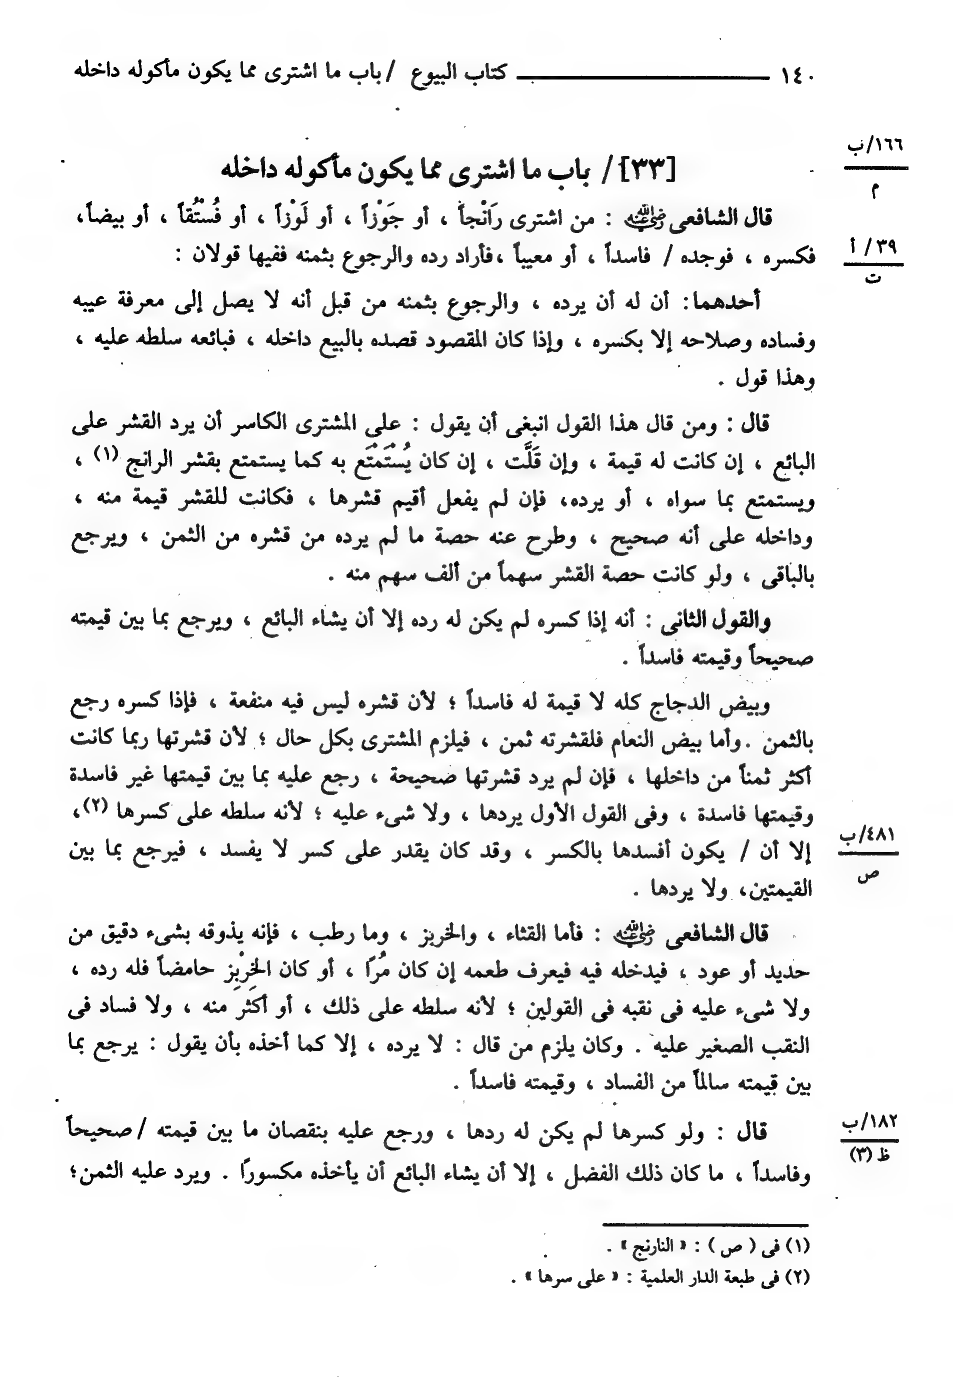 ١٤٠ ــــــــــــــــ كتاب البيوع / باب ما اشترى مما يكون مأكوله داخله
١٦٦/ب
م
[٣٣] / باب ما اشترى مما يكون مأكوله داخله
قال الشافعى رضي الله عنه : من اشترى رَانْجاً ، أو جَوْزاً ، أو لَوْزاً ، أو فُسْتُقاً ، أو بيضاً،
٣٩/ أ
ت
فكسره ، فوجده / فاسداً ، أو معيباً ،فأراد رده والرجوع بثمنه ففيها قولان :
أحدهما: أن له أن يرده ، والرجوع بثمنه من قبل أنه لا يصل إلى معرفة عيبه
وفساده وصلاحه إلا بكسره ، وإذا كان المقصود قصده بالبيع داخله ، فبائعه سلطه عليه ،
وهذا قول .
قال : ومن قال هذا القول انبغى أن يقول : على المشترى الكاسر أن يرد القشر على
البائع ، إن كانت له قيمة ، وإن قَلَّت ، إن كان يُسْتَمْتَع به كما يستمتع بقشر الرانج (١) ،
ويستمتع بما سواه ، أو يرده، فإن لم يفعل أقيم قشرها ، فكانت للقشر قيمة منه ،
وداخله على أنه صحيح ، وطرح عنه حصة ما لم يرده من قشره من الثمن ، ويرجع
بالباقى ، ولو كانت حصة القشر سهماً من ألف سهم منه .
والقول الثانى : أنه إذا كسره لم يكن له رده إلا أن يشاء البائع ، ويرجع بما بين قيمته
صحيحاً وقيمته فاسداً .
وبيض الدجاج كله لا قيمة له فاسداً ؛ لأن قشره ليس فيه منفعة ، فإذا كسره رجع
بالثمن .وأما بيض النعام فلقشرته ثمن ، فيلزم المشترى بكل حال ؛ لأن قشرتها ربما كانت
أكثر ثمناً من داخلها ، فإن لم يرد قشرتها صحيحة ، رجع عليه بما بين قيمتها غير فاسدة
وقيمتها فاسدة ، وفى القول الأول يردها ، ولا شىء عليه ؛ لأنه سلطه على كسرها (٢)،
٤٨١/ب
ص
إلا أن / يكون أفسدها بالكسر ، وقد كان يقدر على كسر لا يفسد ، فيرجع بما بين
القيمتين، ولا يردها .
قال الشافعى رضي الله عنه : فأما القثاء ، والخربز ، وما رطب ، فإنه يذوقه بشىء دقيق من
حديد أو عود ، فيدخله فيه فيعرف طعمه إن كان مُرًا ، أو كان الخِرْبِز حامضاً فله رده ،
ولا شىء عليه فى نقبه فى القولين ؛ لأنه سلطه على ذلك ، أو أكثر منه ، ولا فساد فى
النقب الصغير عليه . وكان يلزم من قال : لا يرده ، إلا كما أخذه بأن يقول : يرجع بما
بين قيمته سالماً من الفساد ، وقيمته فاسداً .
١٨٢/ب
ظ (٣)
قال : ولو كسرها لم يكن له ردها ، ورجع عليه بنقصان ما بين قيمته / صحيحاً
وفاسداً ، ما كان ذلك الفضل ، إلا أن يشاء البائع أن يأخذه مكسورًا . ويرد عليه الثمن؛
(١) فى ( ص ) : « النارنج » .
(٢) فى طبعة الدار العلمية : « على سرها » .